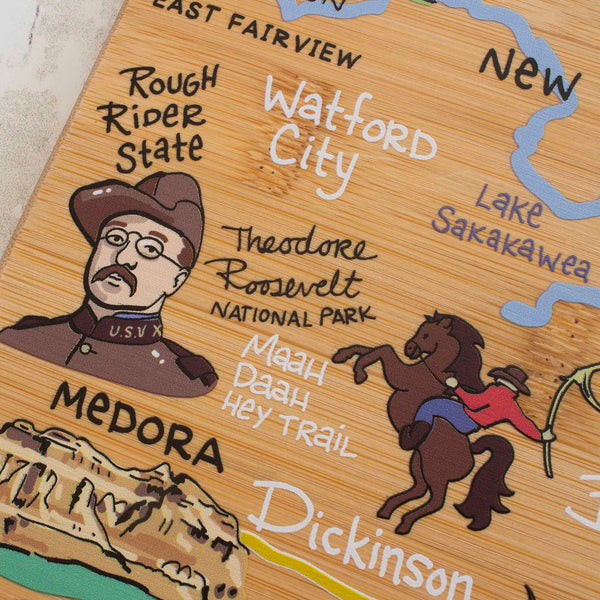 EAST FAIRVIEW
New
Rough
Rider
State
Watford
City
Lake
Sakakawea
Theodore
Roosevelt
NATIONAL PARK
U.S.V X
Maah
Daah
Hey Trail
MEDORA
Dickinson